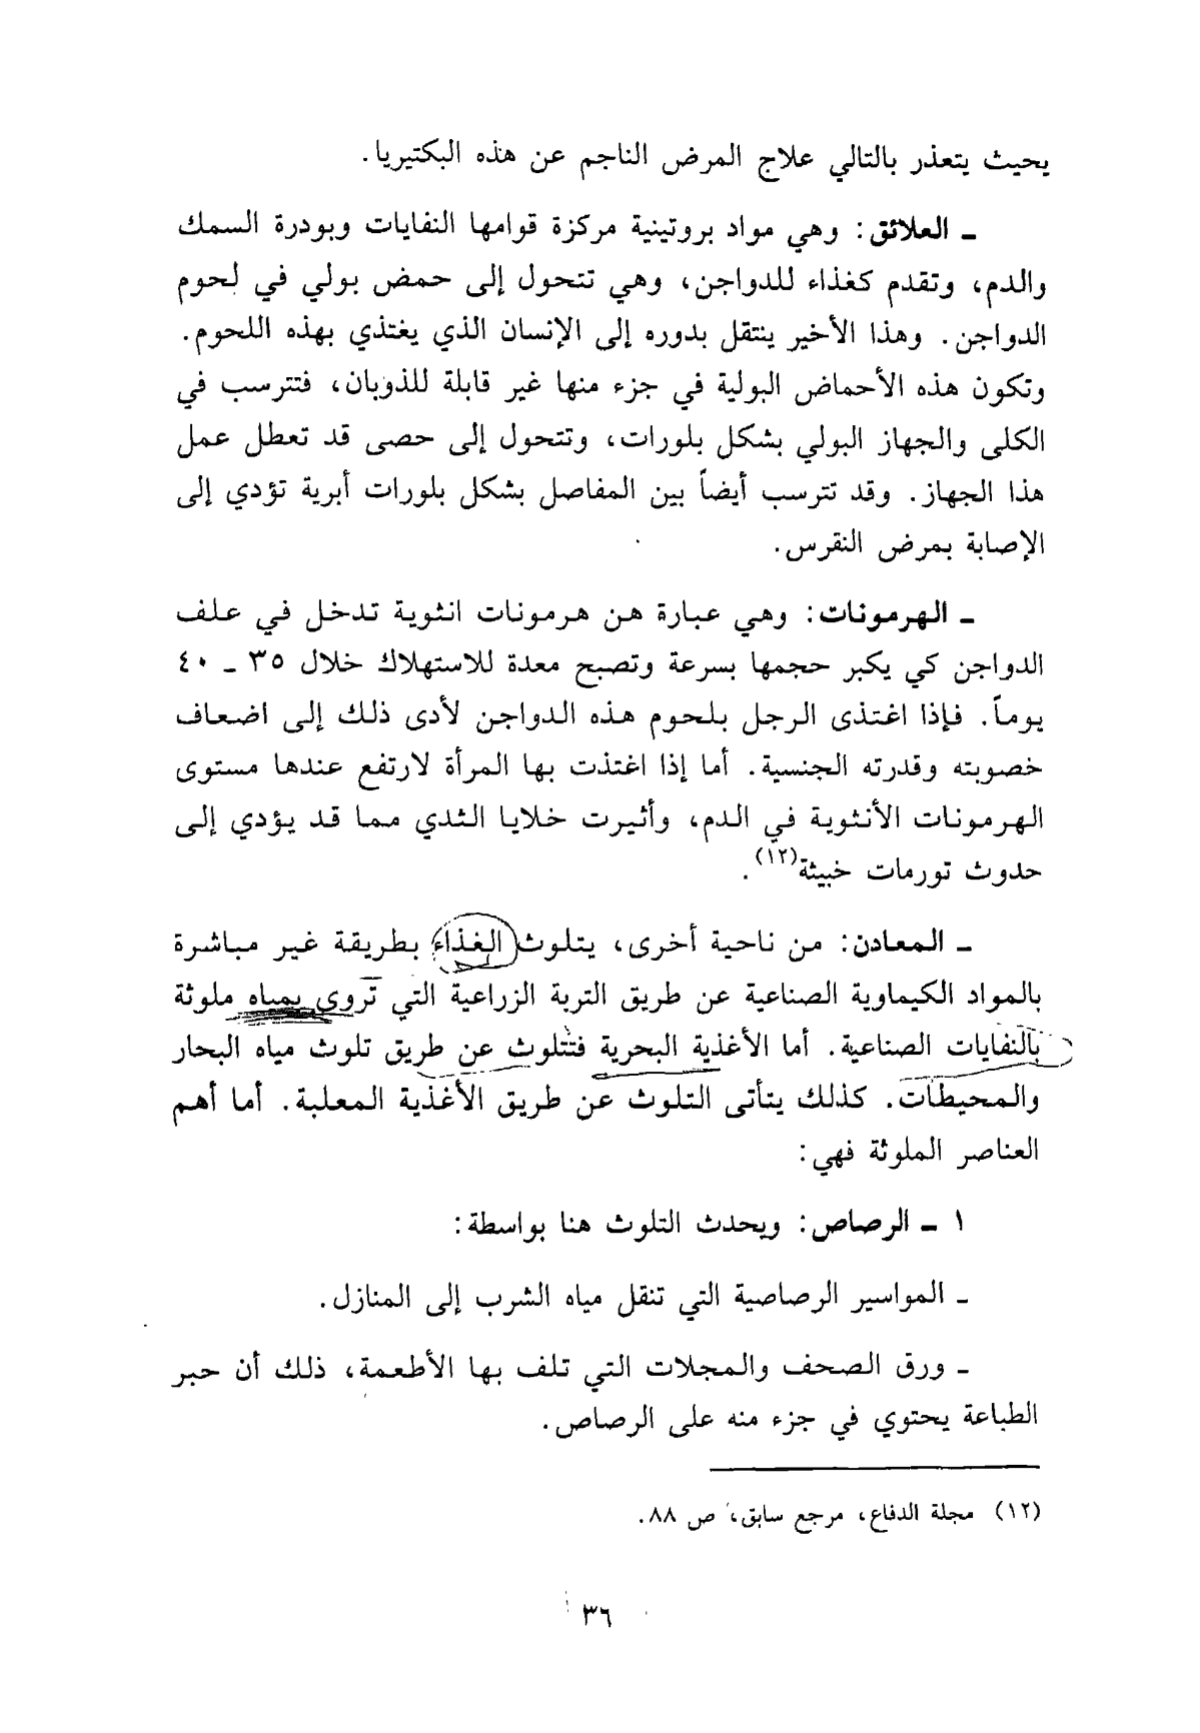 يحيث يتعذر بالتالي علاج المرض الناجم عن هذه البكتيريا.
ـ العلائق: وهي مواد بروتينية مركزة قوامها النفايات وبودرة السمك
والدم، وتقدم كغذاء للدواجن، وهي تتحول إلى حمض بولي في لحوم
الدواجن. وهذا الأخير ينتقل بدوره إلى الإنسان الذي يغتذي بهذه اللحوم.
وتكون هذه الأحماض البولية في جزء منها غير قابلة للذوبان، فتترسب في
الكلى والجهاز البولي بشكل بلورات، وتتحول إلى حصى قد تعطل عمل
هذا الجهاز. وقد تترسب أيضاً بين المفاصل بشكل بلورات أبرية تؤدي إلى
الإصابة بمرض النقرس.
ـ الهرمونات: وهي عبارة هن هرمونات انثوية تدخل في علف
الدواجن كي يكبر حجمها بسرعة وتصبح معدة للاستهلاك خلال ٣٥ ـ ٤٠
يوماً. فإذا اغتذى الرجل بلحوم هذه الدواجن لأدى ذلك إلى اضعاف
خصوبته وقدرته الجنسية. أما إذا اغتذت بها المرأة لارتفع عندها مستوى
الهرمونات الأنثوية في الدم، وأثيرت خلايا الثدي مما قد يؤدي إلى
حدوث تورمات خبيثة(١٢).
ـ المعادن: من ناحية أخرى، يتلوث الغذاء بطريقة غير مباشرة
بالمواد الكيماوية الصناعية عن طريق التربة الزراعية التي تروى بمياه ملوثة
بالنفايات الصناعية. أما الأغذية البحرية فتتلوث عن طريق تلوث مياه البحار
والمحيطات. كذلك يتأتى التلوث عن طريق الأغذية المعلبة. أما أهم
العناصر الملوثة فهي:
١ ـ الرصاص: ويحدث التلوث هنا بواسطة:
ـ المواسير الرصاصية التي تنقل مياه الشرب إلى المنازل.
ـ ورق الصحف والمجلات التي تلف بها الأطعمة، ذلك أن حبر
الطباعة يحتوي في جزء منه على الرصاص.
(١٢) مجلة الدفاع، مرجع سابق، ص ٨٨.
٣٦